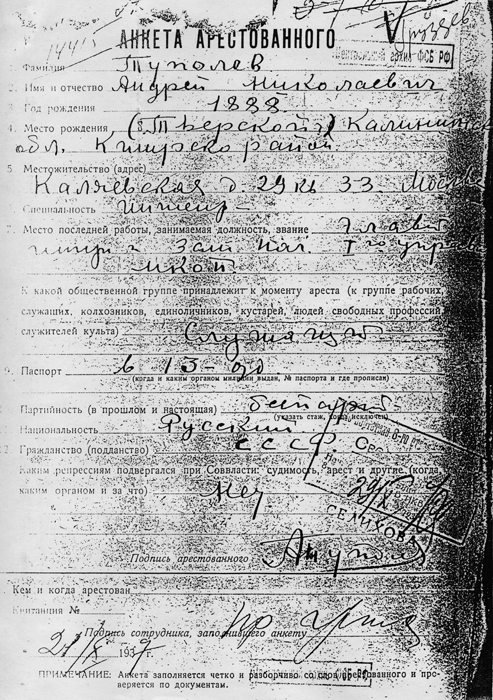 АНКЕТА АРЕСТОВАННОГО
Центральный архив ФСБ РФ
Фамилия Туполев
2. Имя и отчество Андрей Николаевич
3. Год рождения 1888
4. Место рождения (б. Тверской) Калининск
обл. Кимрско район
5. Местожительство (адрес)
Каляевская д. 29 кв 33. Москва
Специальность инженер
7. Место последней работы, занимаемая должность, звание Главн
Зам нач. 1го управ
НКОП
К какой общественной группе принадлежит к моменту ареста (к группе рабочих,
служащих, колхозников, единоличников, кустарей, людей свободных профессий,
служителей культа) Служащий
9. Паспорт в 13-
(когда и каким органом милиции выдан, № паспорта и где прописан)
Партийность (в прошлом и настоящая) беспарт
(указать стаж, когда исключен)
Национальность Русский
Гражданство (подданство) СССР.
Каким репрессиям подвергался при Соввласти: судимость, арест и другие (когда,
каким органом и за что) Нет
СЕЛИХОВА
Подпись арестованного А Туполев
Кем и когда арестован
Квитанция №
Подпись сотрудника, заполнившего анкету
21/X 1937
ПРИМЕЧАНИЕ: Анкета заполняется четко и разборчиво со слов арестованного и про-
веряется по документам.